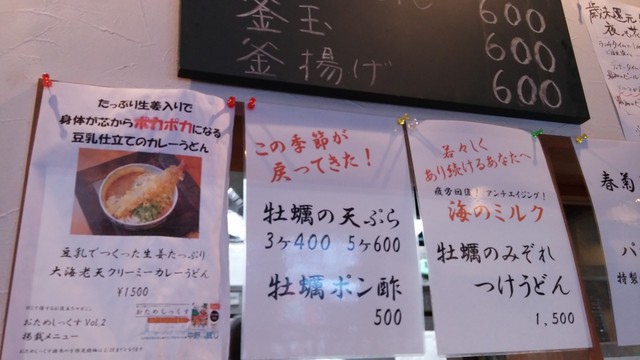 釜玉 600
釜揚げ 600
600
たっぷり生姜入りで
身体が芯からポカポカになる
豆乳仕立てのカレーうどん
豆乳でつくった生姜たっぷり
大海老天クリーミーカレーうどん
¥1500
おためしっくす Vol.2
掲載メニュー
おためしっくす
この季節が
戻ってきた!
牡蠣の天ぷら
3ヶ400 5ヶ600
牡蠣ポン酢
500
若々しく
あり続けるあなたへ
疲労回復!アンチエイジング!
海のミルク
牡蠣のみぞれ
つけうどん
1,500
春菊
特製